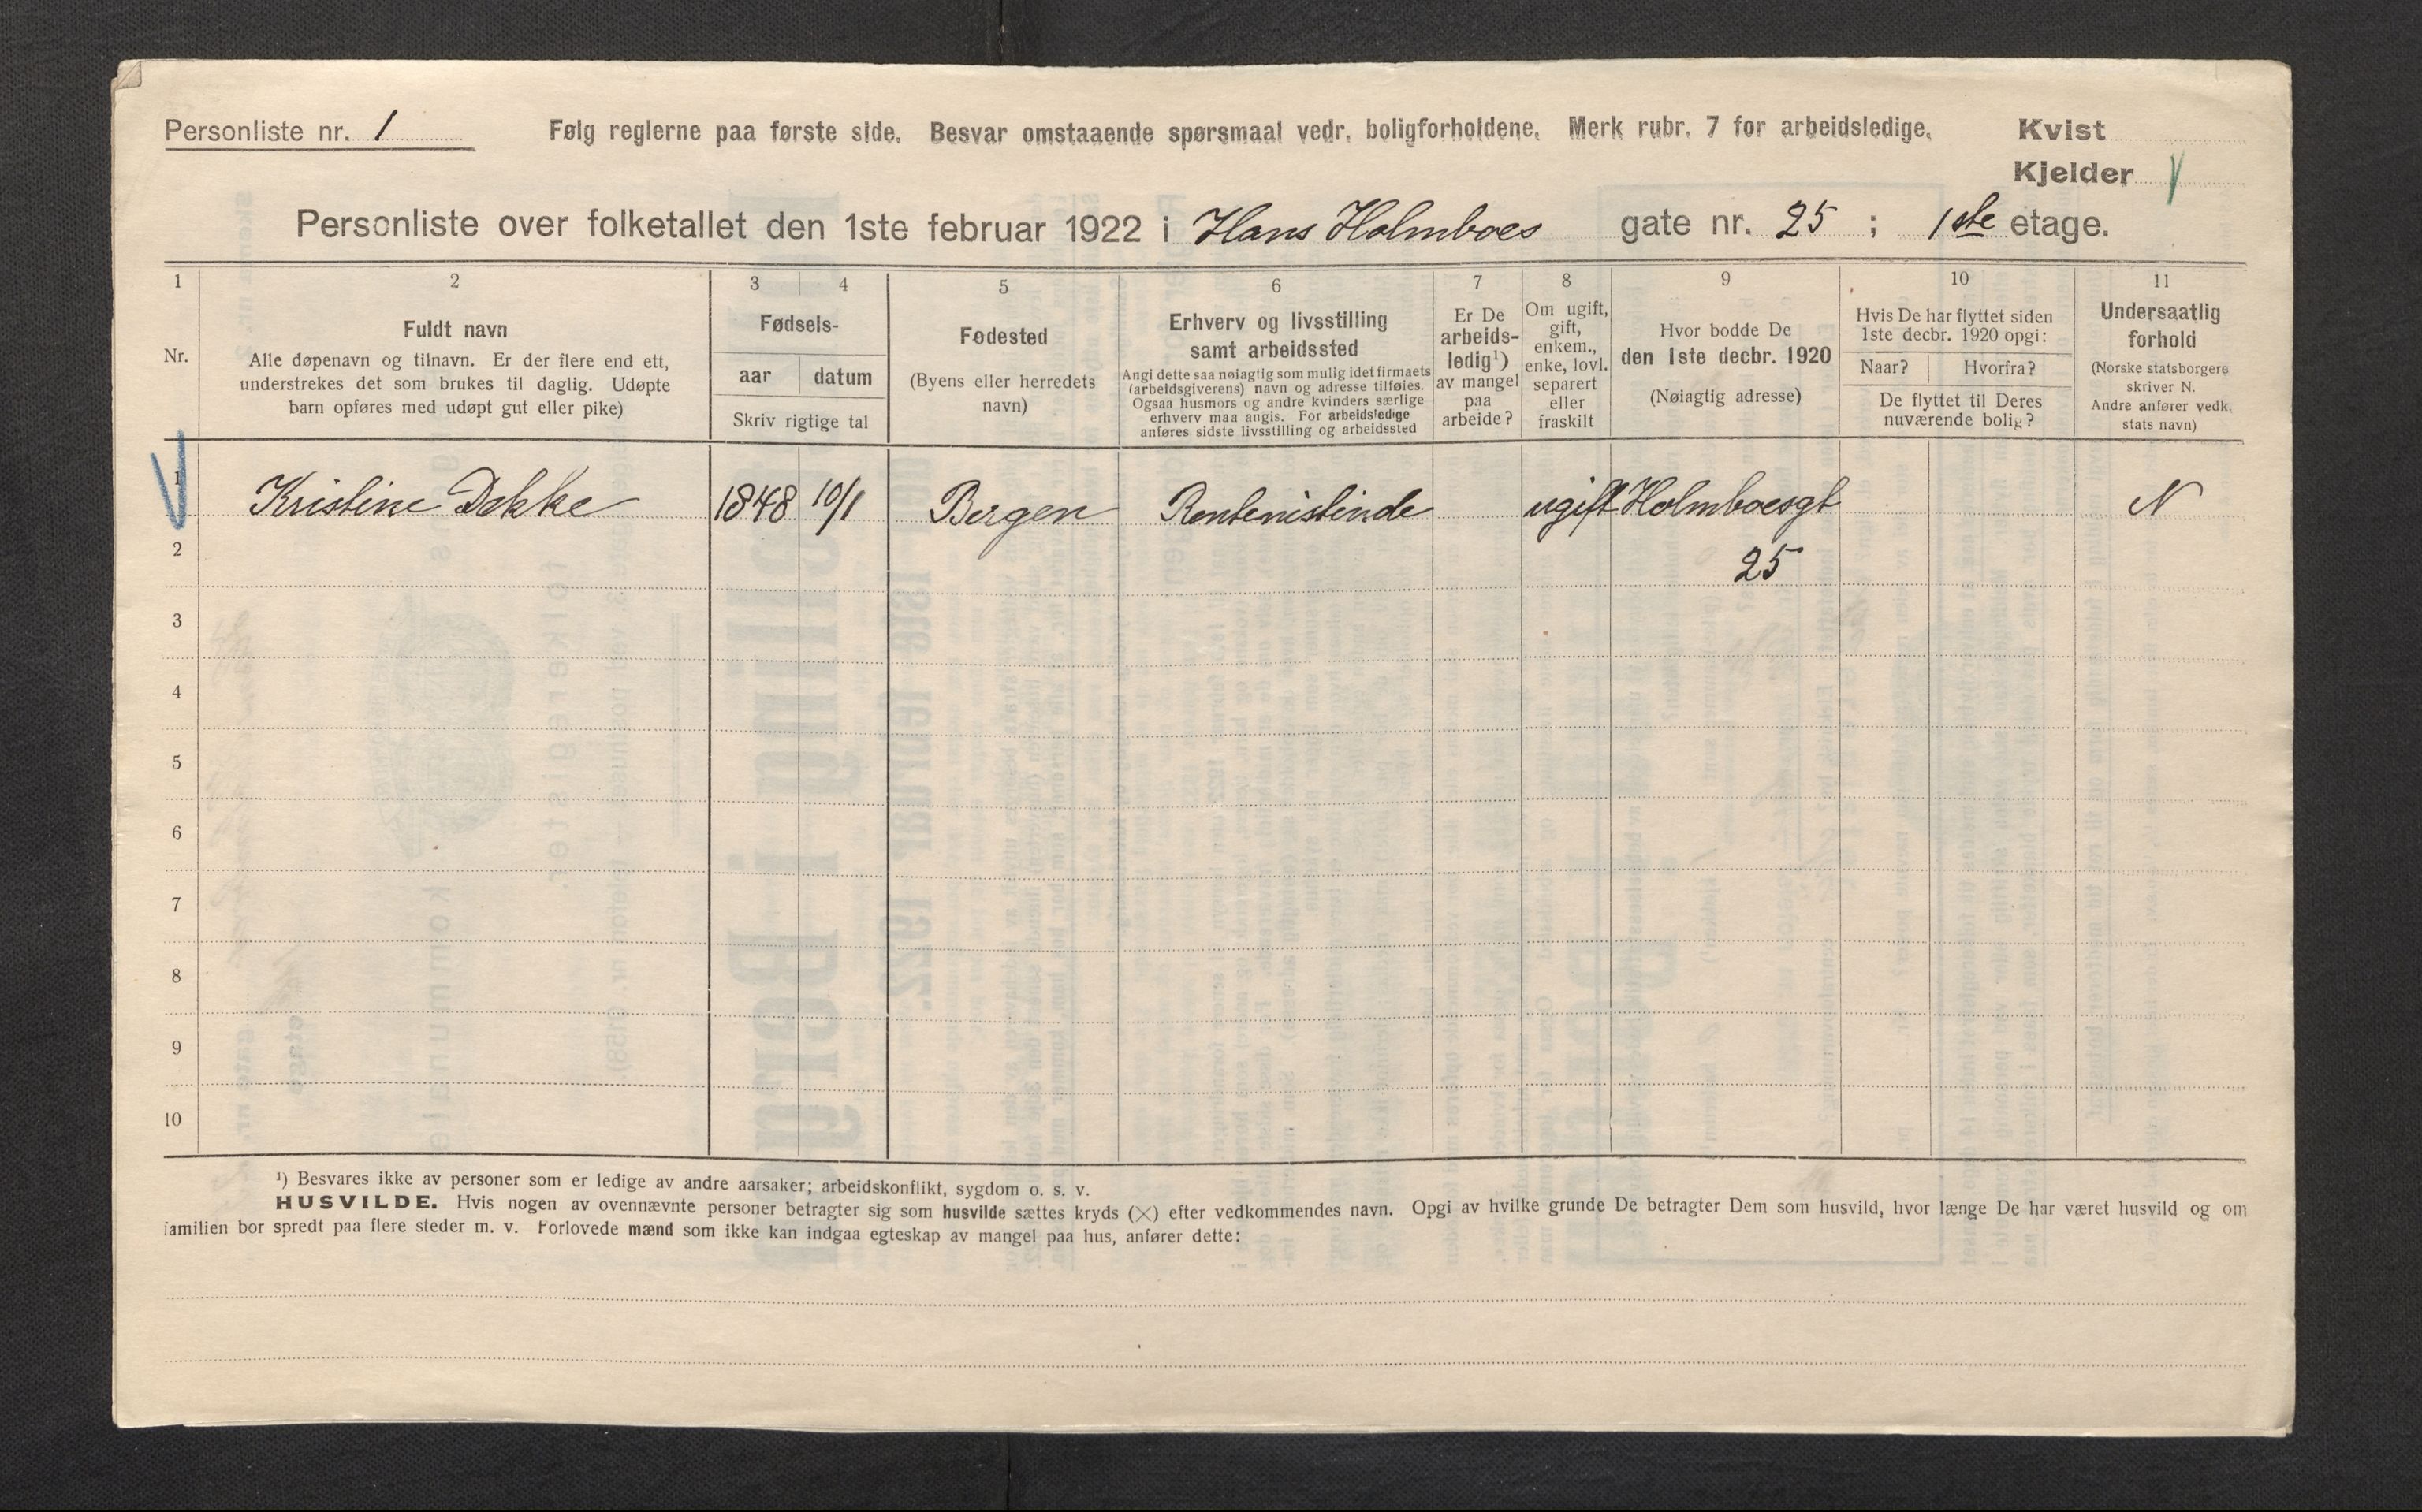 Personliste nr. 1
Følg reglerne paa første side. Besvar omstaaende spørsmaal vedr. boligforholdene. Merk rubr. 7 for arbeidsledige.
Kvist
Kjelder
Personliste over folketallet den 1ste februar 1922 i Hans Holmboes gate nr. 25 ; 1ste etage.
1
Nr.
2
Fuldt navn
Alle døpenavn og tilnavn. Er der flere end ett,
understrekes det som brukes til daglig. Udøpte
barn opføres med udøpt gut eller pike)
3 4
Fødsels-
aar datum
Skriv rigtige tal
5
Fødested
(Byens eller herredets
navn)
6
Erhverv og livsstilling
samt arbeidssted
Angi dette saa nøiagtig som mulig idet firmaets
(arbeidsgiverens) navn og adresse tilføies.
Ogsaa husmors og andre kvinders særlige
erhverv maa angis. For arbeidsledige
anføres sidste livsstilling og arbeidssted
7
Er De
arbeids-
ledig¹)
av mangel
paa
arbeide?
8
Om ugift,
gift,
enkem.,
enke, lovl.
separert
eller
fraskilt
9
Hvor bodde De
den 1ste decbr. 1920
(Nøiagtig adresse)
10
Hvis De har flyttet siden
1ste decbr. 1920 opgi:
Naar? Hvorfra?
De flyttet til Deres
nuværende bolig?
11
Undersaatlig
forhold
(Norske statsborgere
skriver N.
Andre anfører vedk.
stats navn)
1 Kristine Dekke 1848 10/1 Bergen Rentenistinde ugift Holmboesgt N
2 25
3
4
5
6
7
8
9
10
¹) Besvares ikke av personer som er ledige av andre aarsaker; arbeidskonflikt, sygdom o. s. v.
HUSVILDE. Hvis nogen av ovennævnte personer betragter sig som husvilde sættes kryds (×) efter vedkommendes navn. Opgi av hvilke grunde De betragter Dem som husvild, hvor længe De har været husvild og om
familien bor spredt paa flere steder m. v. Forlovede mænd som ikke kan indgaa egteskap av mangel paa hus, anfører dette: